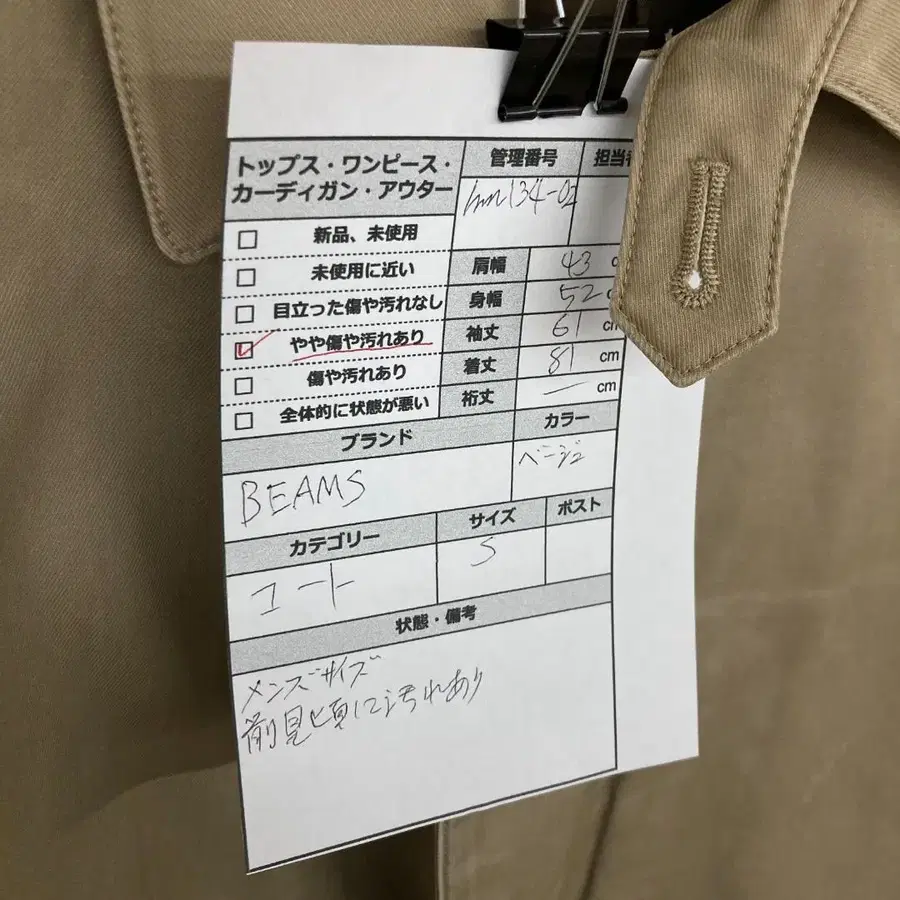 トップス・ワンピース・
カーディガン・アウター
管理番号
担当者
134-02
新品、未使用
未使用に近い
目立った傷や汚れなし
やや傷や汚れあり
傷や汚れあり
全体的に状態が悪い
肩幅 43 c
身幅 52 c
袖丈 61 cm
着丈 81 cm
裄丈 ー cm
ブランド
カラー
BEAMS
ベージュ
カテゴリー
サイズ
ポスト
コート
S
状態・備考
メンズサイズ
前見頃に汚れあり